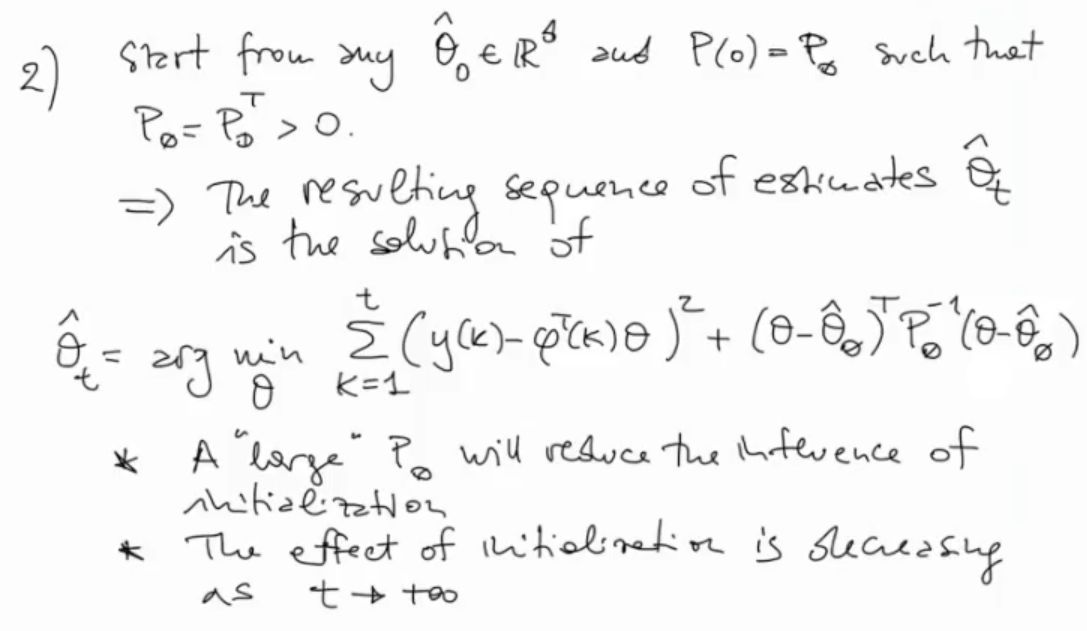 2) Start from any θ̂₀ ∈ ℝᵈ and P(0) = P₀ such that
P₀ = P₀ᵀ > 0.
⇒ The resulting sequence of estimates θ̂ₜ
is the solution of
θ̂ₜ = arg min_θ Σ_{k=1}^{t} (y(k) - φᵀ(k)θ)² + (θ - θ̂₀)ᵀ P₀⁻¹ (θ - θ̂₀)
* A "large" P₀ will reduce the influence of
initialization
* The effect of initialization is decreasing
as t → +∞